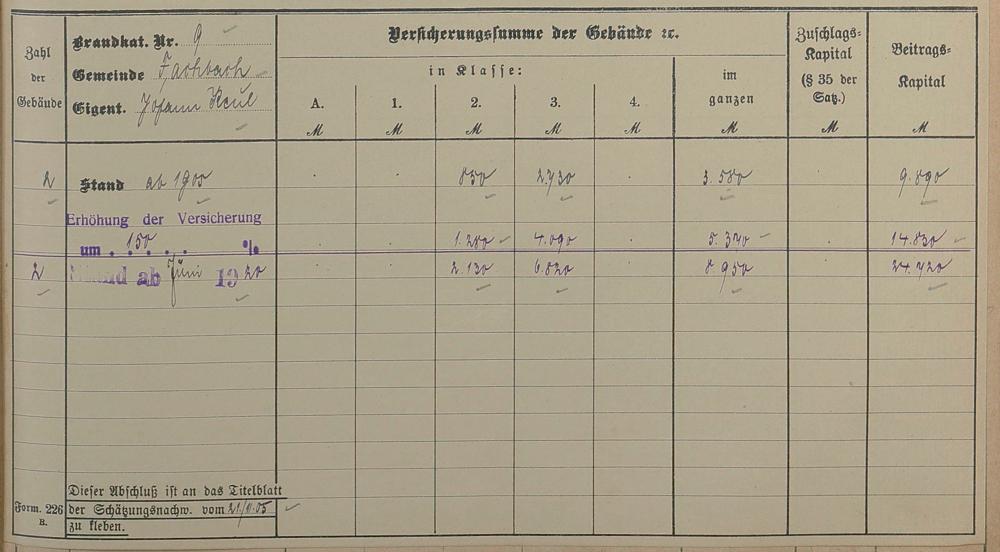 Zahl der Gebäude
Brandkat. Nr. 9
Gemeinde Fachbach
Eigent. Johann Keul
Versicherungssumme der Gebäude ꝛc.
in Klasse:
A. 1. 2. 3. 4.
im ganzen
ℳ ℳ ℳ ℳ ℳ ℳ ℳ ℳ
Zuschlags-Kapital (§ 35 der Satz.)
Beitrags-Kapital
2 Stand ab 1905 . . 850 2.730 . 3.580 . 9.890
Erhöhung der Versicherung
um . 150 . . . % . . 1.280 4.090 . 5.370 . 14.830
2 Stand ab Juni 1920 . . 2.130 6.820 . 8.950 24.720
Dieser Abschluß ist an das Titelblatt
Form. 226 B.
der Schätzungsnachw. vom 21/11.05
zu kleben.